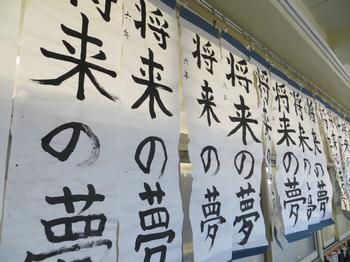 将来の夢
将来の夢
六年
将来の夢
六年
将来の夢
六年
将来の夢
将来の夢
将来の夢